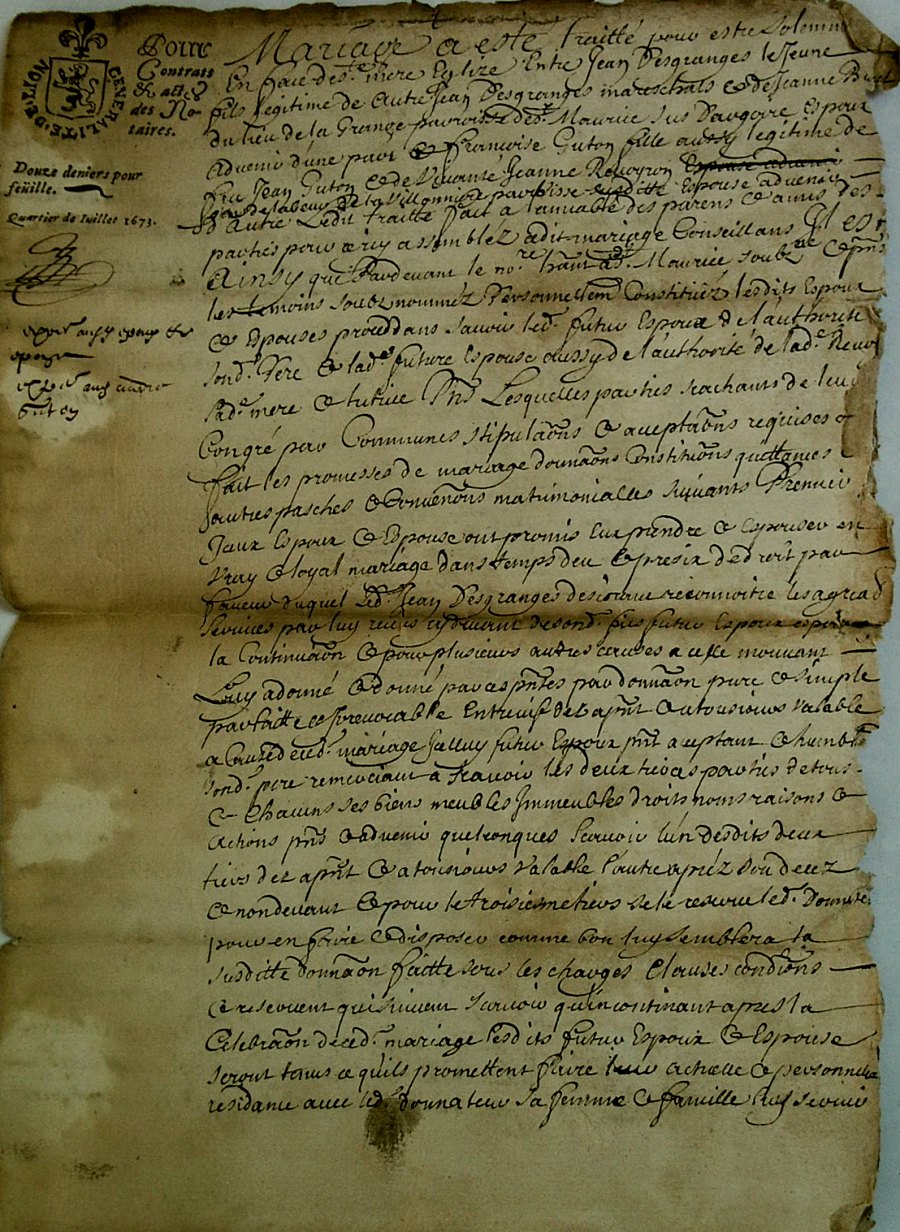 GENERALITÉ DE LION
POUR
Contrats
& actes
des No-
taires.
Douze deniers pour
feüille.
Quartier de Iuillet 1673.
Mariage a esté traitté pour estre solemni
En face de ste mere Eglize Entre Jean Desgranges le Jeune
fils legitime de autre Jean Desgranges mareschal & de Jeanne
du lieu de la Grange parroisse de St Maurice sus Dargoire Espoux
advenir d'une part & francoise Guton fille aussy legitime de
feu Jean Guton & de vivante Jeanne Revoyron Espouse advenir
parroisse susditte Espouse advenir
d'autre Ledit traitté fait a l'amiable des parens & amis des
parties pour ce icy assemblez adit mariage Conseillans Il est
Ainsy que Pardevant le no.re hant ad. St Maurice soubz.né & pnts
les temoins soubz nommez Personnellemt Constituéz lesdits Espoux
& Espouses proceddans savoir led. futur Espoux de l'authorité
sond. Pere & lad. future Espouse aussy de l'authorité de lad. Revoi
sad. mere & tutrice Pnts Lesquelles parties scachants de leur
Congré par Communes stipulaõns & aceptaõns requises
fait les promesses de mariage donnaõns Constituõns quittances
autres pasches & Convenõns matrimonialles suivants Premier
Jceux Espoux & Espouse ont promis Eux prendre & Espouser en
vray & loyal mariage dans temps deu & presix de droit par
faveur duquel Led. Jean Desgranges desirant reconnoitre les agread
services par luy receus cydevant de sond. fils futur Espoux
la Continuaõn & pour plusieurs autres causes a ce le mouvant
Luy a donné & donne par ces pntes par donnaõn pure & simple
parfaitte & Irrevocable Entre vifs dez aprnt & atousiours valable
a Cauze de ced. mariage Jcelluy futur Espoux pnt aceptant & humblt
sond. pere remerciant a scavoir les deux tierces parties de tous
& Chacuns ses biens meubles Jmmeubles droits noms raisons &
actions pnts & advenir quelconques scavoir l'un desdits deux
tiers dez aprnt & atousiours valable l'autre apréz son decez
& non devant & pour le troisiesme tiers se le reserve led. Donnate
pour en faire & disposer comme bon luy semblera la
susditte donnaõn faitte sous les charges Clauses condiõns
& reservent qui suivent scavoir qu'incontinant apres la
Celebraõn de ced. mariage lesdits futur Espoux & Espouse
seront tenus ce quils promettent faire leur actuelle & personnelle
residance avec led. donnateur sa femme & famille